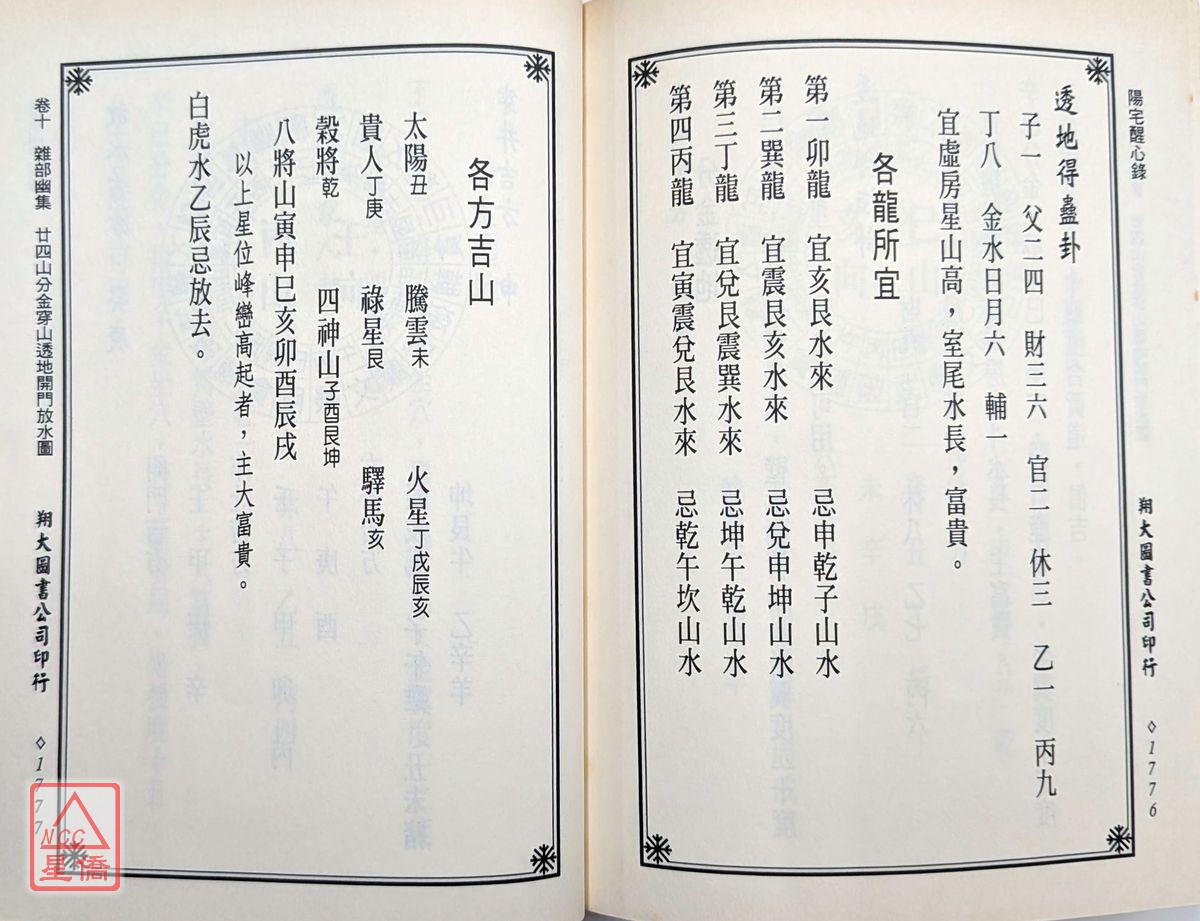 陽宅醒心錄
翔大圖書公司印行 ◇1776
透地得蠱卦
子一 父二四 財三六 官二 休三 乙一 丙九
丁八 金水日月六 輔一
宜虛房星山高，室尾水長，富貴。
各龍所宜
第一卯龍 宜亥艮水來 忌申乾子山水
第二巽龍 宜震艮亥水來 忌兌申坤山水
第三丁龍 宜兌艮震巽水來 忌坤午乾山水
第四丙龍 宜寅震兌艮水來 忌乾午坎山水
各方吉山
太陽丑 騰雲未 火星丁戌辰亥
貴人丁庚 祿星艮 驛馬亥
穀將乾 四神山子酉艮坤
八將山寅申巳亥卯酉辰戌
以上星位峰巒高起者，主大富貴。
白虎水乙辰忌放去。
卷十 雜部幽集 廿四山分金穿山透地開門放水圖
翔大圖書公司印行 ◇1777
NCC
星僑